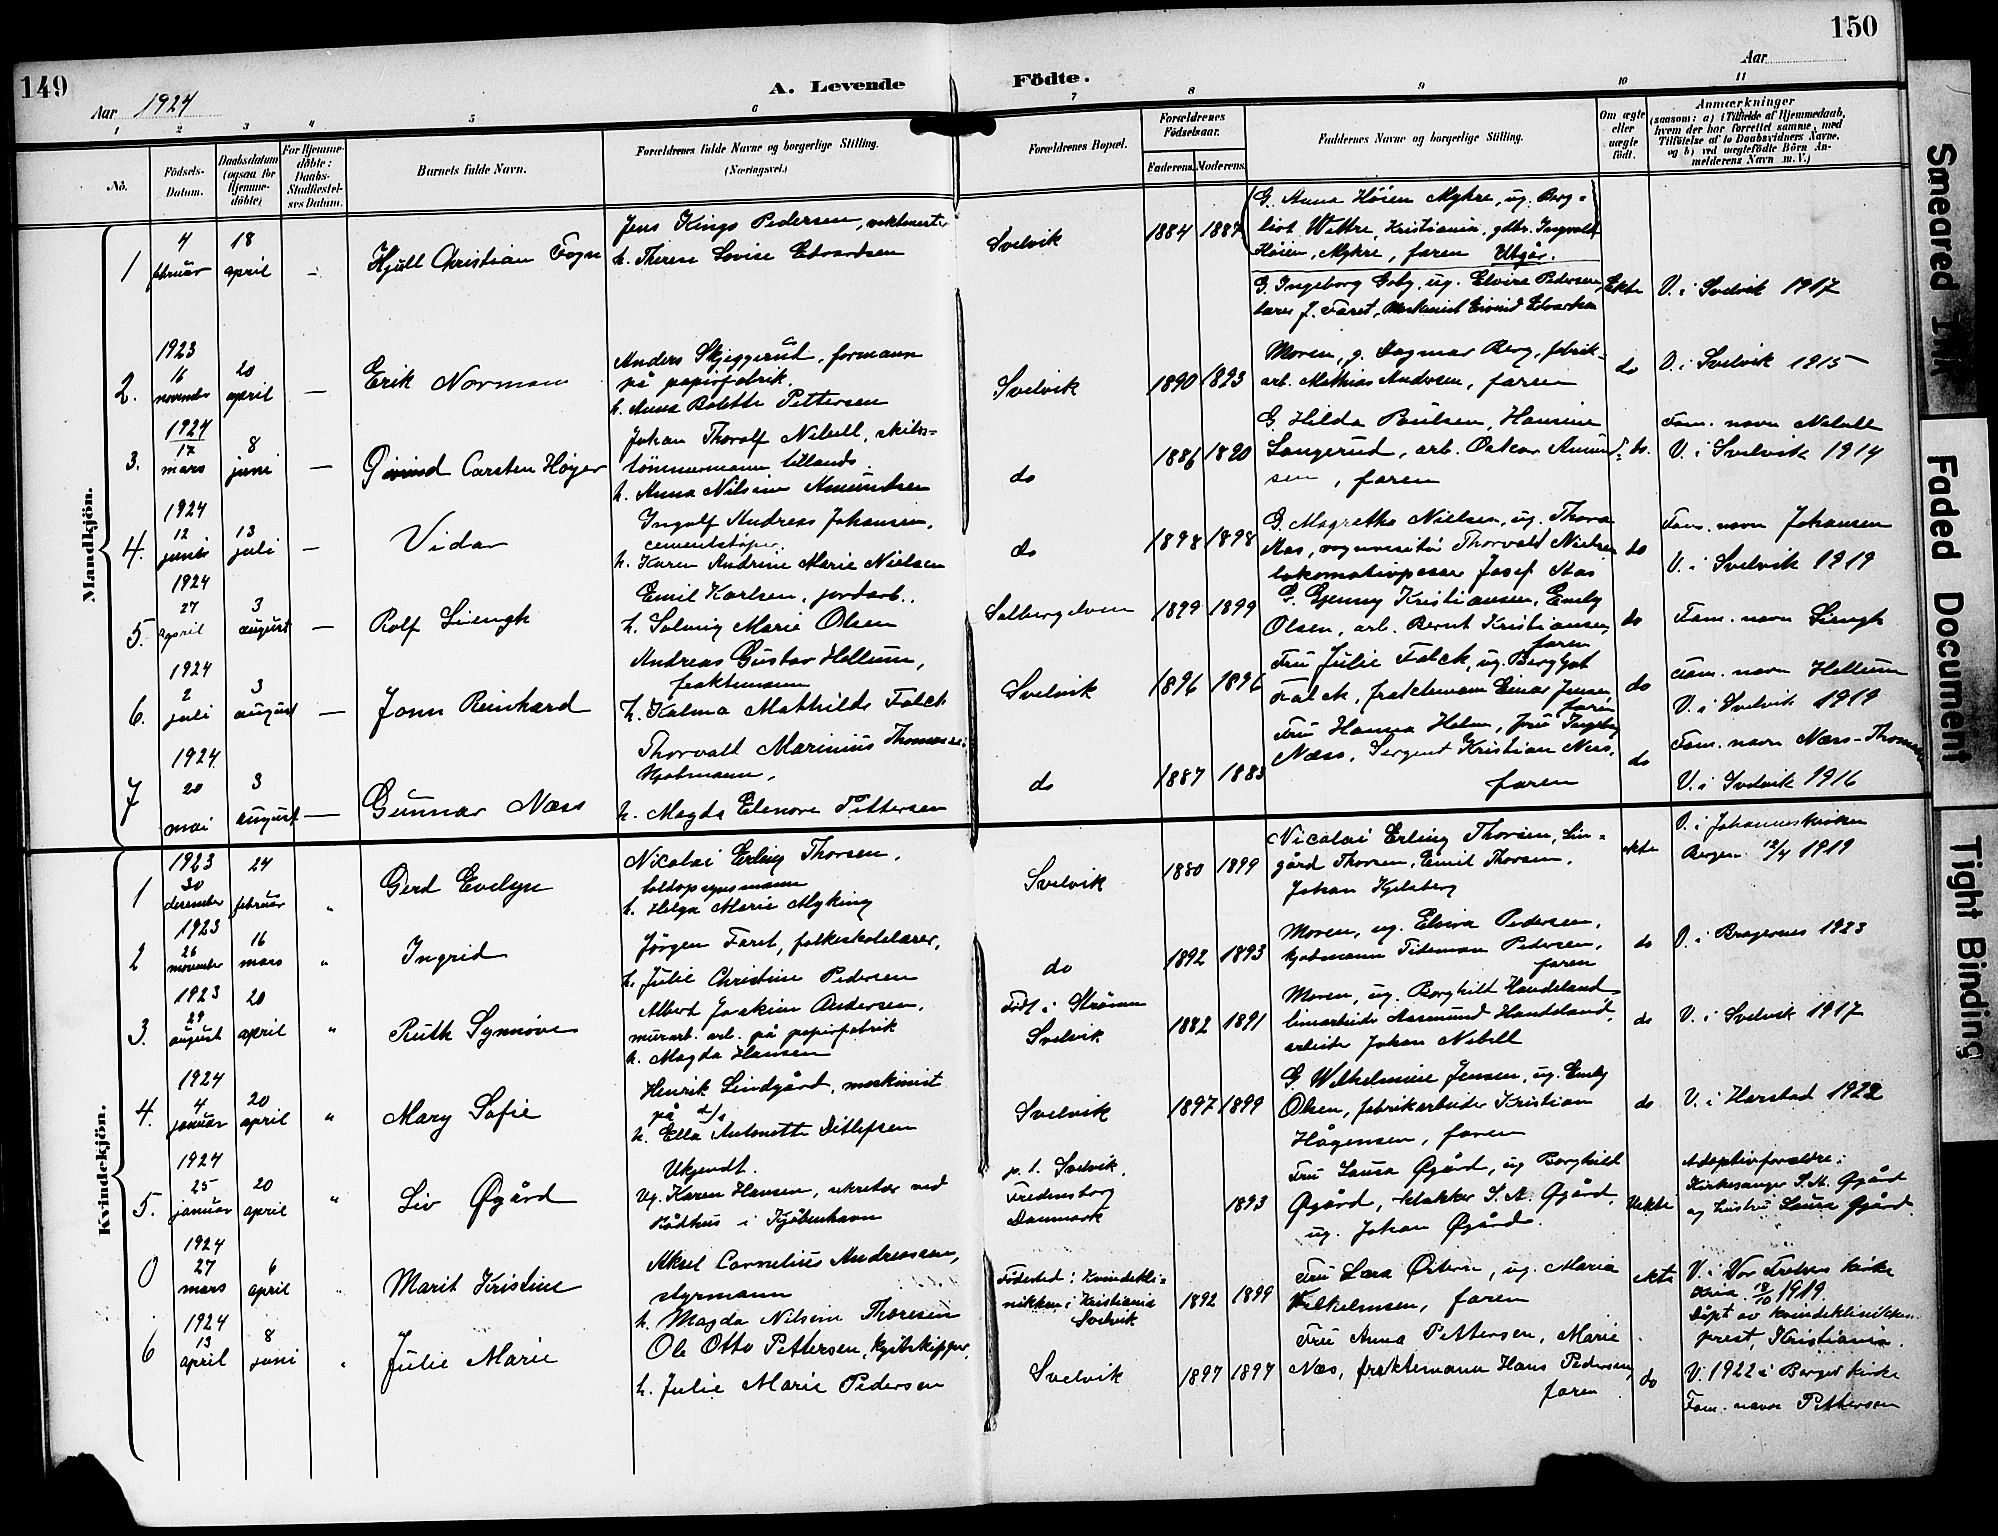 149
150
Aar 1924
A. Levende Födte.
Aar
1 2 3 4 5 6 7 8 9 10 11
No.
Födsels-Datum.
Daabsdatum (ogsaa for Hjemme-döbte)
For Hjemme-döbte: Daabs-Stadfæstelses Datum.
Barnets fulde Navn.
Forældrenes fulde Navne og borgerlige Stilling.
(Næringsvei.)
Forældrenes Bopæl.
Forældrenes Födselsaar.
Faderens. Moderens.
Faddernes Navne og borgerlige Stilling.
Om ægte eller uægte födt.
Anmærkninger
(saasom: a) i Tilfælde af Hjemmedaab, hvem der har forrettet samme, med Tilföielse af to Daabsvidners Navne, og b) ved uægtefödte Börn Anmelderens Navn m. V.)
Mandkjön.
1 4 februar 18 april – Hjell Christian Fogn
Jens Kings Pedersen,
h. Therese Lovise Edvardsen
Svelvik 1884 1887
G. Anna Höien Myhre, ug. Berg-
liot Wettre, Kristiania, gbr. Ingvald
Höien, Myhre, faren Utgår.
G. Ingeborg Goby, ug. Elvira Pedersen,
lærer J. Faret, Maskinist Eivind Edvardsen
Ekte V. i Svelvik 1917
2. 1923 16 novembr 20 april – Erik Norman
Anders Skjeggerud, formann
på papirfabrik.
h. Anna Bolette Pettersen
Svelvik 1890 1893
Moren, g. Dagmar Berg, fabrik-
arb. Mathias Andersen, faren
do V. i Svelvik 1915
3. 1924 17 mars 8 juni – Öivind Carsten Höyer
Johan Thoralf Nebell, skibs-
tömmermann
h. Anna Nilsine Amundsen
do 1886 1890
G. Hilda Paulsen, Hansine
Langerud, arb. Oskar Amund-
sen, faren
do. Fam. navn Nebell
V. i Svelvik 1914
4. 1924 12 juni 13 juli – Vidar
Ingolf Andreas Johansen,
cementstöper.
h. Karen Andrine Marie Nielsen
do 1898 1898
G. Magretha Nielsen, ug. Thora
Aas, vognvisitör Thorvald Nielsen
lokomotivpusser Josef Aas
do Fam. navn Johansen
V. i Svelvik 1919
5. 1924 27 april 3 august – Rolf Liengh
Emil Karlsen, jordarb.
h. Solveig Marie Olsen
Solbergelven 1899 1899
G. Gjenny Kristiansen, Emly
Olsen, arb. Bernt Kristiansen,
faren
do Fam. navn Liengh
6. 1924 2 juli 3 august – Jonn Reinhard
Andreas Gustav Hellum,
fraktemann
h. Kalma Mathilde Falck
Svelvik 1896 1896
Fru Julie Falck, ug. Bergljot
Falck, fraktemann Einar Jensen,
faren
do Fam. navn Hellum
V. i Svelvik 1919
7 1924. 20 mai 3 august – Gunnar Næss
Thorvald Marinius Thomassen
kjöbmann,
h. Magda Elenore Pettersen
do 1887 1883
Fru Hanna Holm, fru Ingeborg
Næss, Sergent Kristian Næss,
faren
do Fam. navn Næss-Thomassen
V. i Svelvik 1916
Kvindekjön.
1 1923 30 desember 24 februar " Gerd Evelyn
Nicolai Erling Thorsen,
toldopsynsmann
h. Helga Marie Myking
Svelvik 1880 1899
Nicolai Erling Thorsen, Lin-
gård Thorsen, Emil Thorsen,
Johan Kjelsberg
ekte V. i Johanneskirken
Bergen 12/4 1919
2 1923 26 november 16 mars " Ingrid
Jörgen Faret, folkeskolelærer,
h. Julie Christine Pedersen
do 1892 1893
Moren, ug. Elvira Pedersen,
kjöbmann Tideman Pedersen,
faren
do V. i Bragernes 1923
3. 1923 29 august 20 april " Ruth Synnöve
Albert Joakim Andersen,
murarb. arb. på papirfabrik
h. Magda Hansen
Födt i Strömm
Svelvik 1882 1891
Moren, ug. Borghild Handeland
Aasmund Handeland,
arbeider Johan Nebell
do V. i Svelvik 1917
4. 1924 4 januar 20 april " Mary Sofie
Henrik Lindgård, maskinist
på d/s
h. Ella Antonette Ditlefsen
Svelvik 1897 1899
G. Wilhelmine Jensen, ug. Emly
Olsen, fabrikarbeider Kristian
Hågensen, faren
do V. i Harstad 1922
5. 1924 25 januar 20 april " Liv Øgård
Ukjendt.
Ug. Karen Hansen, sekretær ved
Rådhus i Kjöbenhavn
p. t. Svelvik,
Fredensborg
Danmark 1893
Fru Laura Øgård, ug Borghild
Øgård, klokker S. A. Øgård,
ug. Johan Øgård.
Uekte Adoptivforældre:
Kirkesanger S. A. Øgård
og hustru Laura Øgård.
0 1924 27 mars 6 april Marit Kristine
Aksel Cornelius Andreassen,
styrmann
h. Magda Nilsine Thoresen
Födested: Kvindekli-
nikken i Kristiania
Svelvik 1892 1899
Fru Lara Östern, ug. Maria
Vilhelmsen, faren
ekte V. i Vor Frelsers kirke
Kria. 12/10 1919.
Döpt av kvindeklinikkens
prest, Kristiania.
6 1924 13 april 8 juni Julie Marie
Ole Otto Pettersen, kystskipper,
h. Julie Marie Pedersen
Svelvik 1897 1897
Fru Anna Pettersen, Marie
Næs, fraktemann Hans Pedersen,
faren
do V. 1922 i Berger kirke
Fam. navn Pettersen
Smeared Ink
Faded Document
Tight Binding